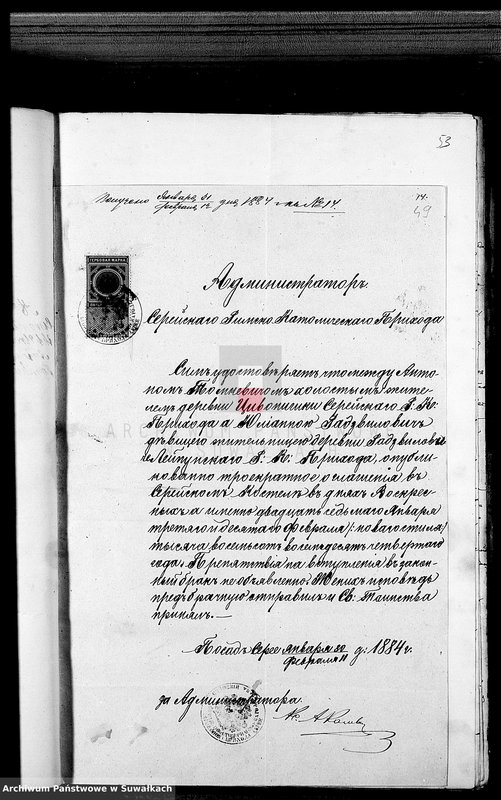 53
Получено Января 31 / Февраля 12 дня 1884 г. къ № 14.
14.
49
ГЕРБОВАЯ МАРКА
Администраторъ
Серейскаго Римско-Католическаго Прихода
Симъ удостовѣряетъ что между Анто-
помъ Томкевичомъ холостымъ жите-
лемъ деревни Серейскаго Р: К:
Прихода а Юліанною Гадзвиловичъ
дѣвицею жительницею деревни
Лейпунскаго Р: К: Прихода, опубли-
кованно троекратное оглашенія въ
Серейскомъ Костелѣ въ дняхъ Воскрес-
ныхъ а именно двадцать седьмаго Января
третяго и десятаго Февраля /: новаго стиля/
тысяча восемьсотъ восемьдесятъ четвертаго
года, Препятствія на вступленія въ закон-
ный бракъ не объявленно. Женихъ исповѣдь
предъбрачную отправилъ и Св: Таинства
принялъ. —
Посадъ Серее Января 30 / Февраля 11 д: 1884 г.
за Администратора.
Кс А
Archiwum Państwowe w Suwałkach